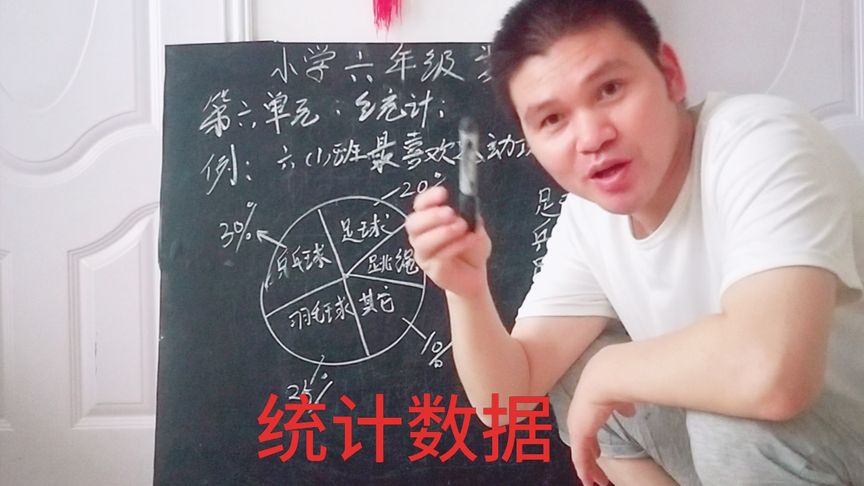 小学六年级
第六单元：统计：
例：六(1)班最喜欢 动
20%
30%
足球
乒乓球
跳绳
羽毛球
其它
10%
25%
足
乒
统计数据